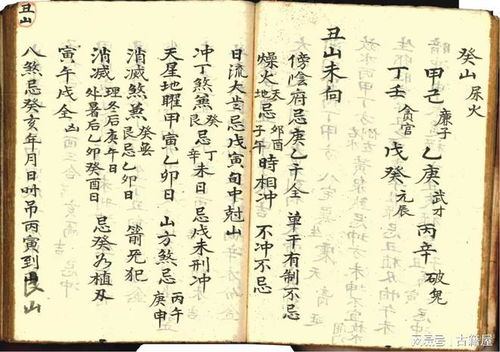 癸山 尿火
甲己 廉子 乙庚 武才 丙辛 破鬼
丁壬 貪官 戊癸 元辰
丑山未向
傍陰府忌庚乙干全 單干有制不忌
燥火 天地 忌 卯酉 子午 時相冲 不冲不忌
日流太歲忌戊寅旬中尅山
冲丁煞兼癸忌丁辛未日 忌戊未刑冲
天星地曜甲寅乙卯日 山方煞忌 丙午 庚申
消滅煞兼 忌乙卯日 箭死犯
消滅 冬后庚午日 處暑后乙卯癸酉日 忌癸为植刃
寅午戌全凶
八煞忌癸亥年月日时吊丙寅到艮山
丑山
古籍屋